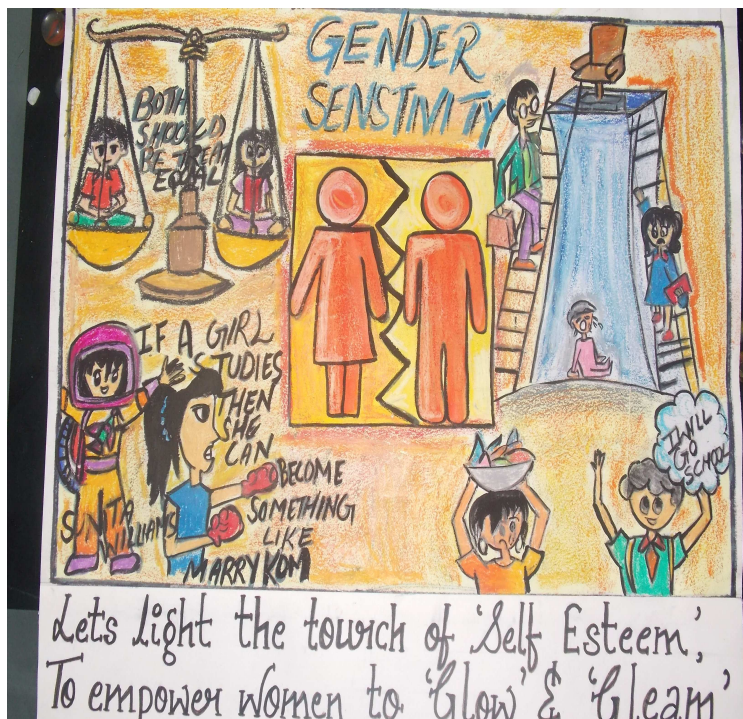 GENDER
SENSTIVITY
BOTH
SHOULD
BE TREAT
EQUAL
IF A GIRL
STUDIES
THEN
SHE
CAN
BECOME
SOMETHING
LIKE
MARRY KOM
SUNITA
WILLIAMS
I WILL
GO
SCHOOL
Lets light the tourch of 'Self Esteem,'
To empower women to 'Glow' & 'Gleam'